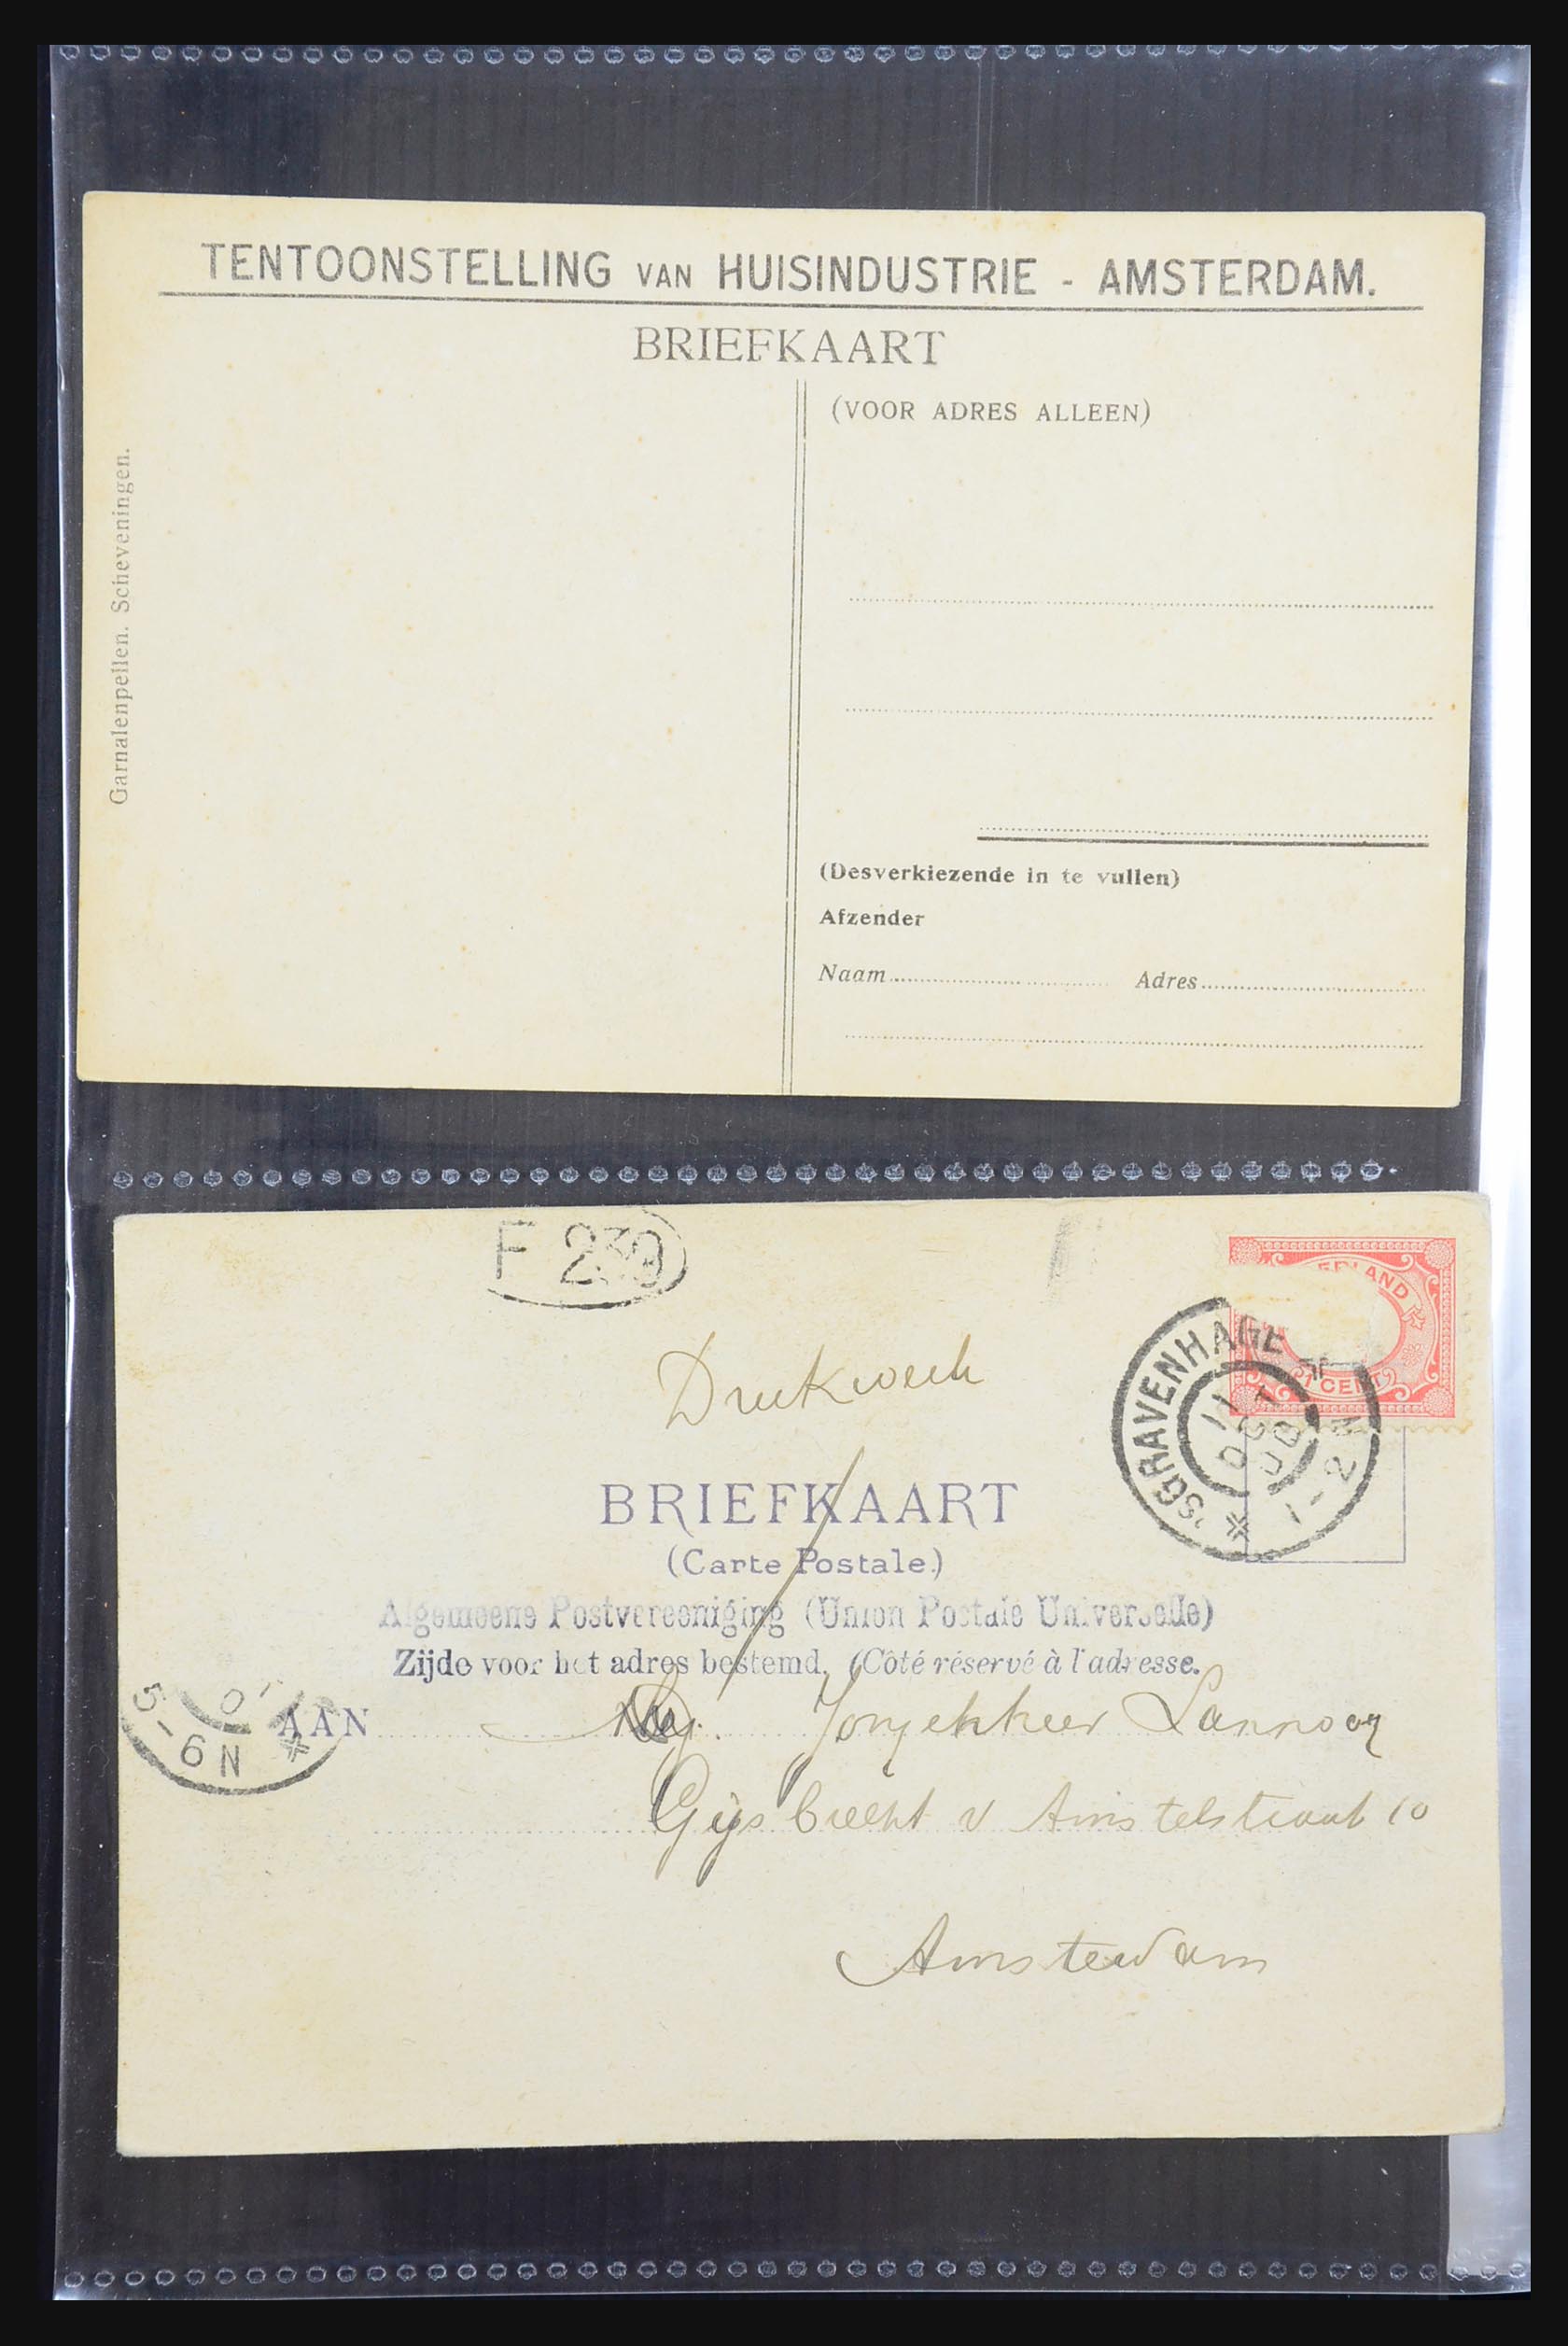 TENTOONSTELLING VAN HUISINDUSTRIE - AMSTERDAM.
BRIEFKAART
(VOOR ADRES ALLEEN)
Garnalenpellen. Scheveningen.
(Desverkiezende in te vullen)
Afzender
Naam Adres
F 230
NEDERLAND
1 CENT
'SGRAVENHAGE
11
OCT
00
1-2N
Drukwerk
BRIEFKAART
(Carte Postale.)
Algemeene Postvereeniging (Union Postale Universelle)
Zijde voor het adres bestemd. (Côté réservé à l'adresse.
5-6N
AAN Jonjekheer Lannooy
Gijsbrecht v Amstelstraat 10
Amsterdam